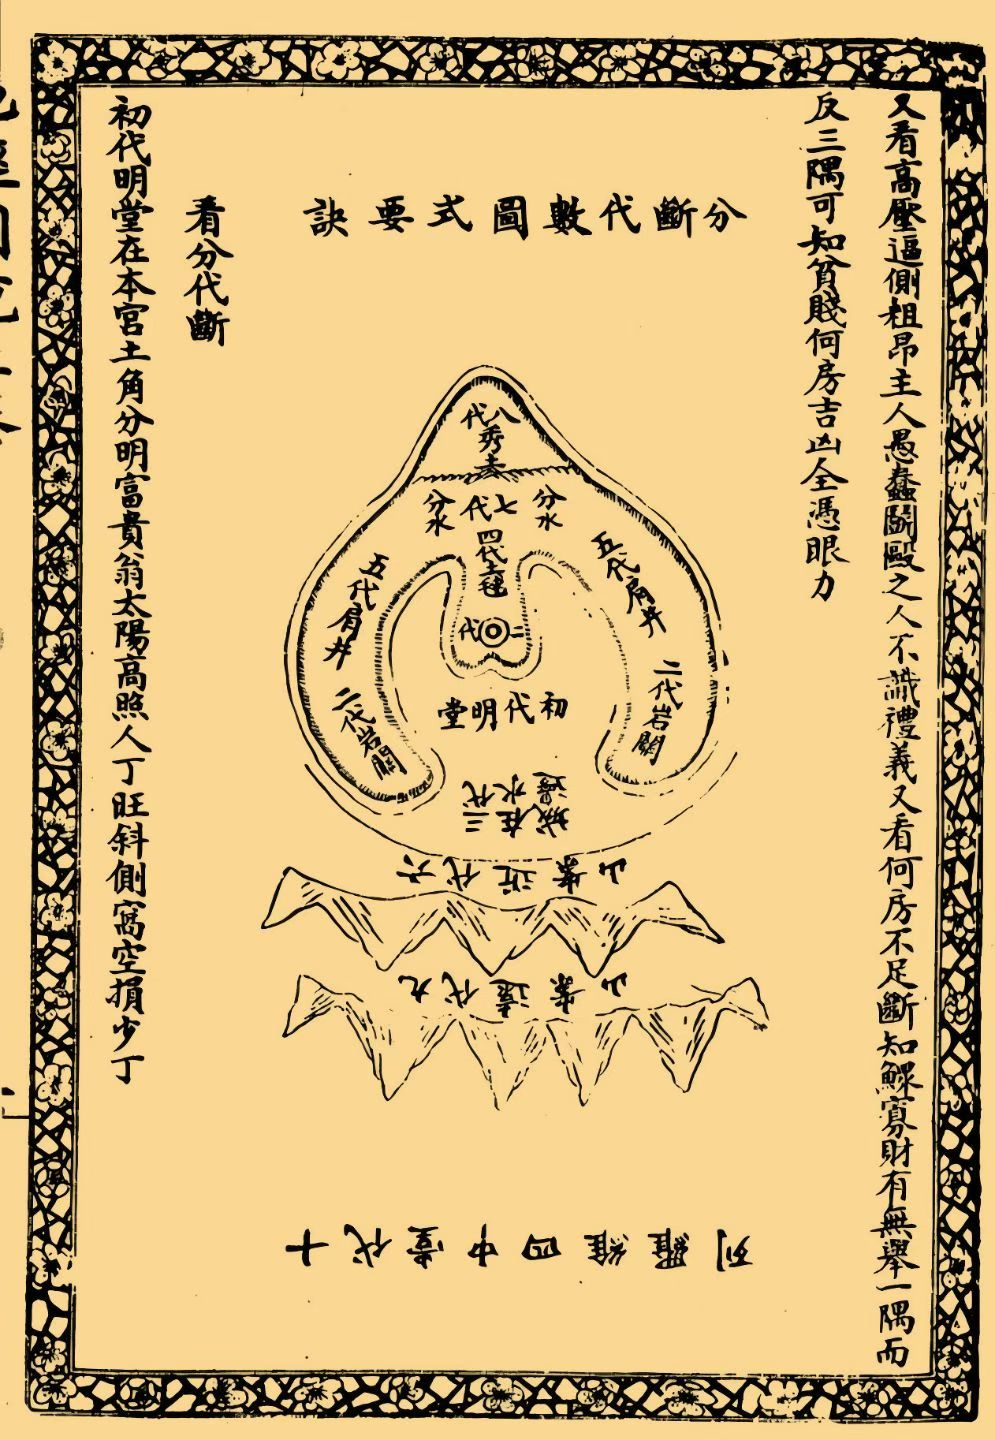 又看高壓逼側粗昂主人愚蠢鬭毆之人不識禮義又看何房不足斷知鰥寡財有無舉一隅而
反三隅可知貧賤何房吉凶全憑眼力
分斷代數圖式要訣
八代秀
分水
七代
分水
四代土毬
五代肩井
五代肩井
二代
二代岩關
二代岩關
初代明堂
三代水邊在城
六代近案山
九代遠案山
十代臺中四維羅列
看分代斷
初代明堂在本宮土角分明富貴翁太陽高照人丁旺斜側窩空損少丁